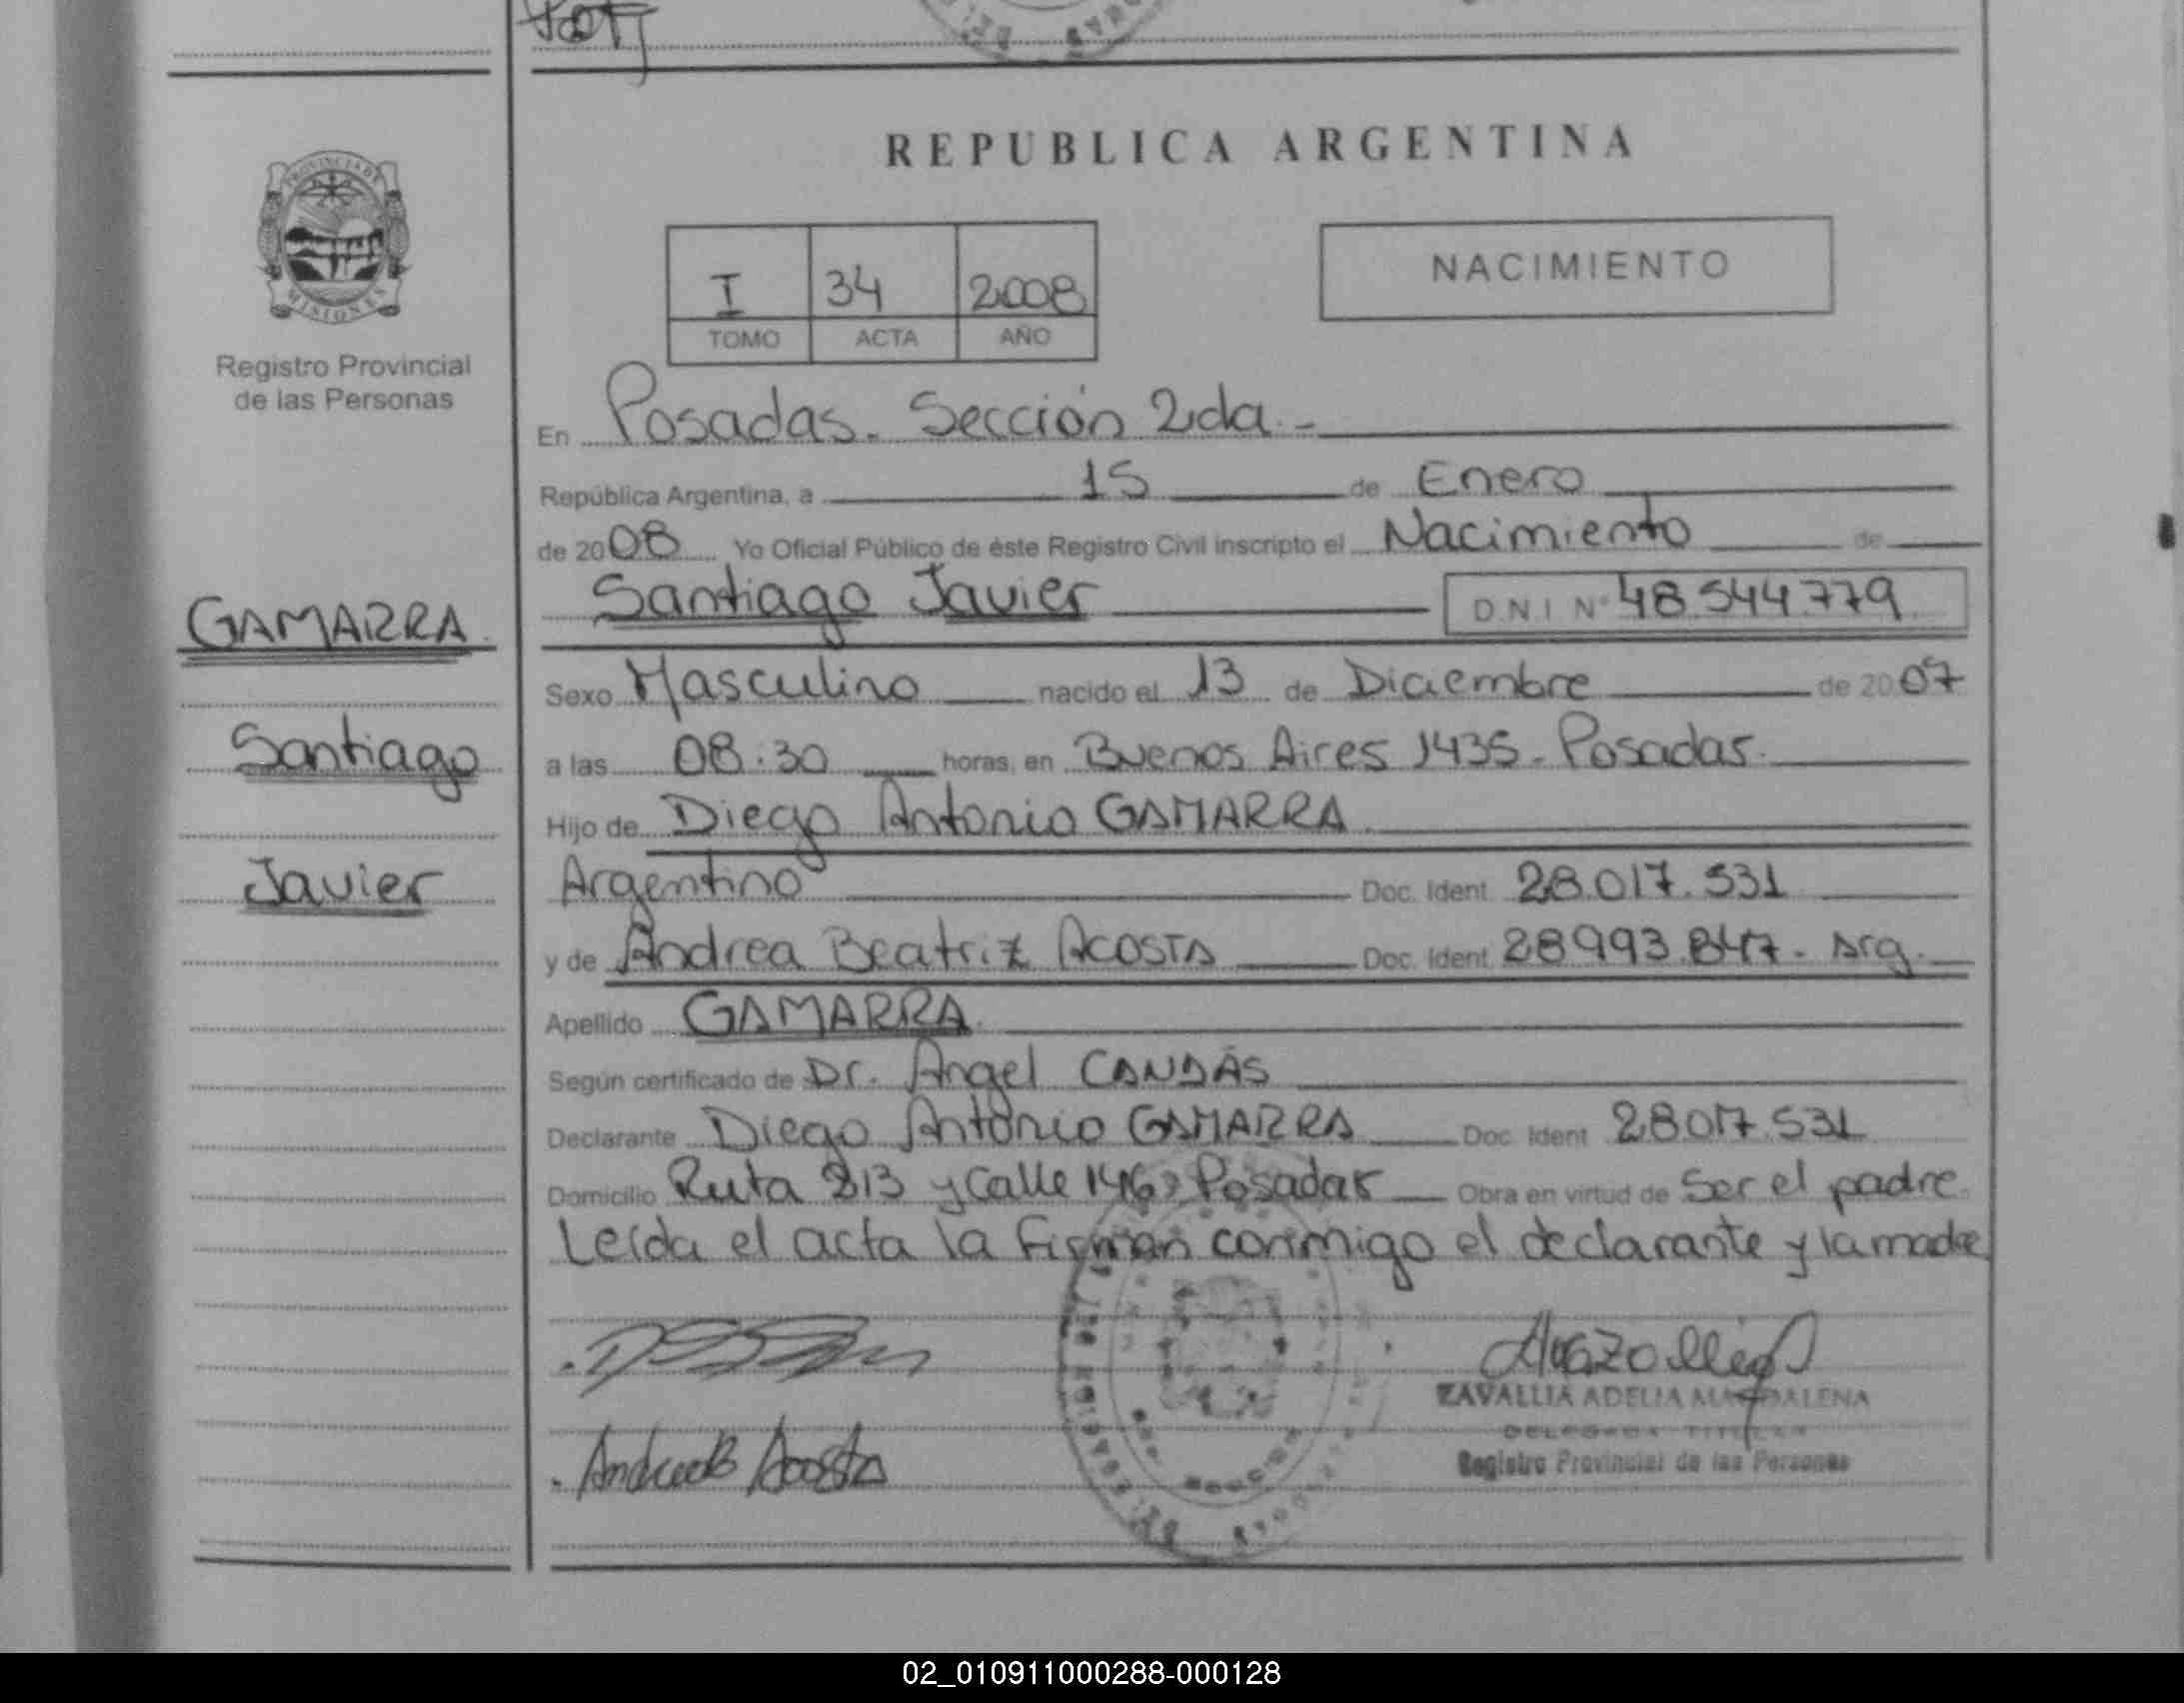 REPUBLICA ARGENTINA
PROVINCIA DE
MISIONES
Registro Provincial
de las Personas
I 34 2008
TOMO ACTA AÑO
NACIMIENTO
En Posadas. Sección 2da.-
República Argentina, a 15 de Enero
de 2008 Yo Oficial Público de éste Registro Civil inscripto el Nacimiento de
Santiago Javier D N I Nº 48.544.779
GAMARRA.
Santiago
Javier
Sexo Masculino nacido el 13 de Diciembre de 2007
a las 08:30 horas, en Buenos Aires 1435. Posadas.
Hijo de Diego Antonio GAMARRA.
Argentino Doc. Ident 28.017.531
y de Andrea Beatriz ACOSTA Doc. Ident 28993.847. Arg.
Apellido GAMARRA.
Según certificado de Dr. Angel CANDÁS
Declarante Diego Antonio GAMARRA Doc. Ident 28017.531
Domicilio Ruta 213 y Calle 146, Posadas Obra en virtud de Ser el padre.
Leída el acta la firman conmigo el declarante y la madre
Acosta
ZAVALLIA ADELIA MAGDALENA
DELEGADA TITULAR
Registro Provincial de las Personas
02_010911000288-000128